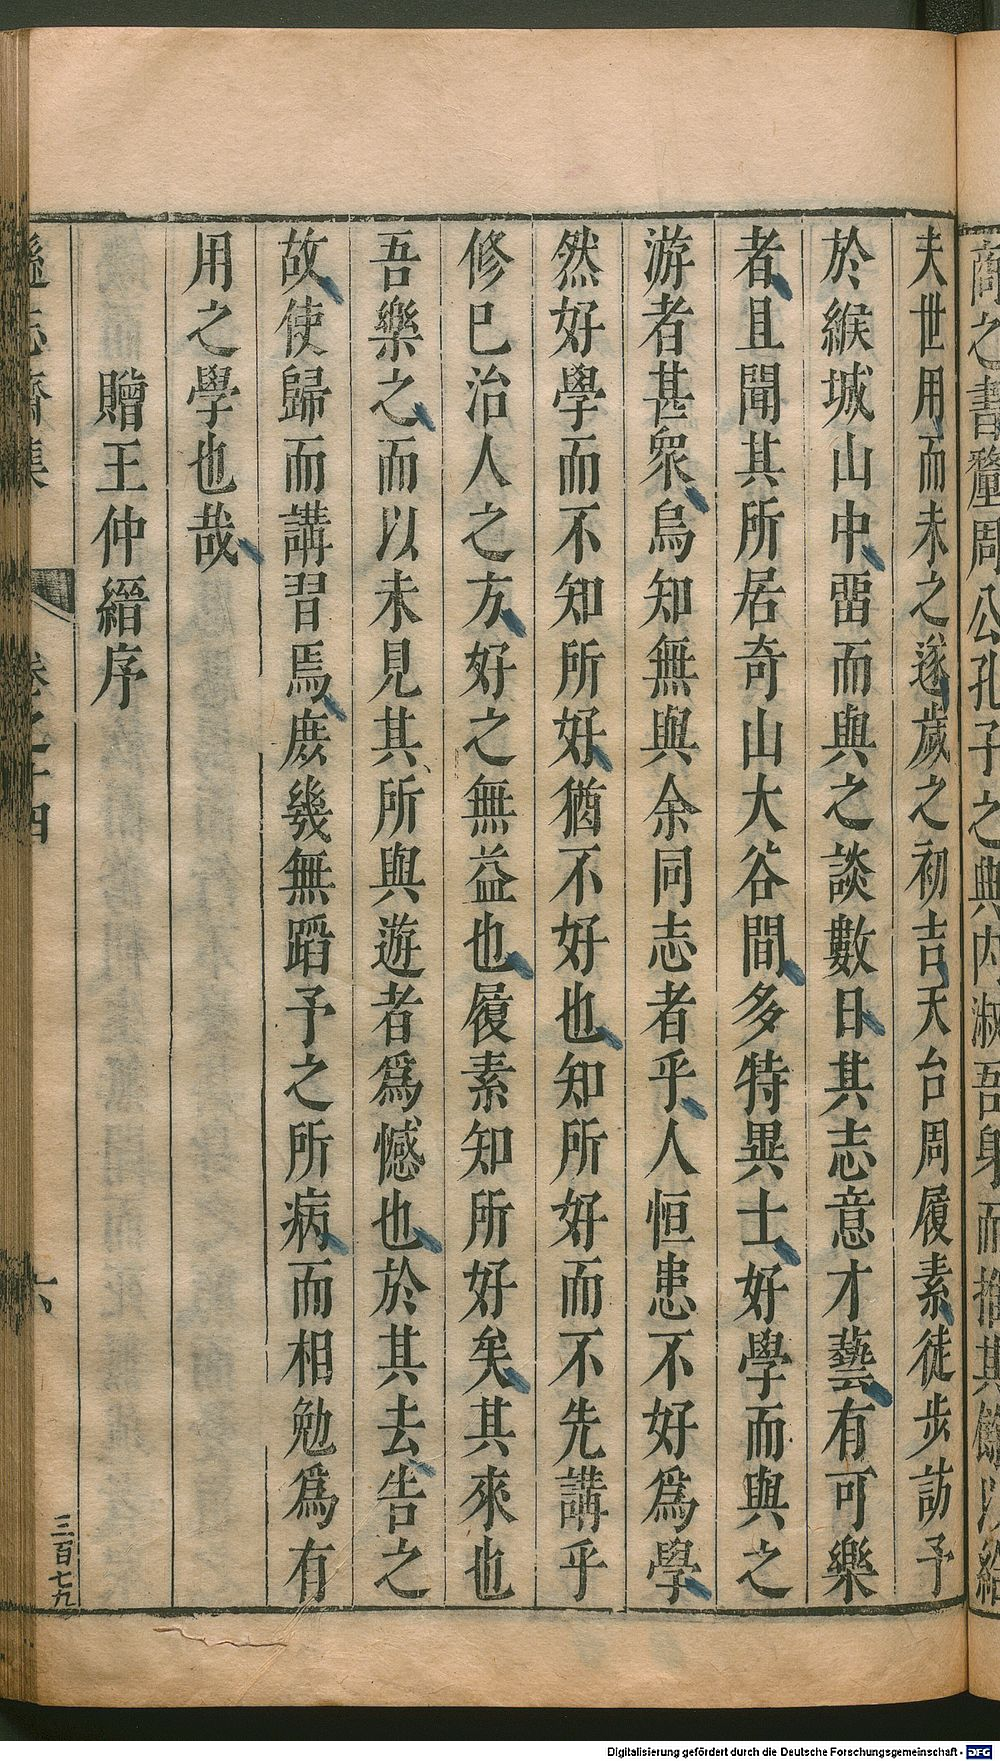 夫世用而未之遂歲之初吉天台周履素徒步訪予
於緱城山中畱而與之談數日其志意才藝有可樂
者且聞其所居奇山大谷間多特異士好學而與之
游者甚衆烏知無與余同志者乎人恒患不好爲學
然好學而不知所好猶不好也知所好而不先講乎
修巳治人之方好之無益也履素知所好矣其來也
吾樂之而以未見其所與遊者爲憾也於其去告之
故使歸而講習焉庶幾無蹈予之所病而相勉爲有
用之學也哉
贈王仲縉序
遜志齋集 卷之十四 六
三百七九
Digitalisierung gefördert durch die Deutsche Forschungsgemeinschaft - DFG